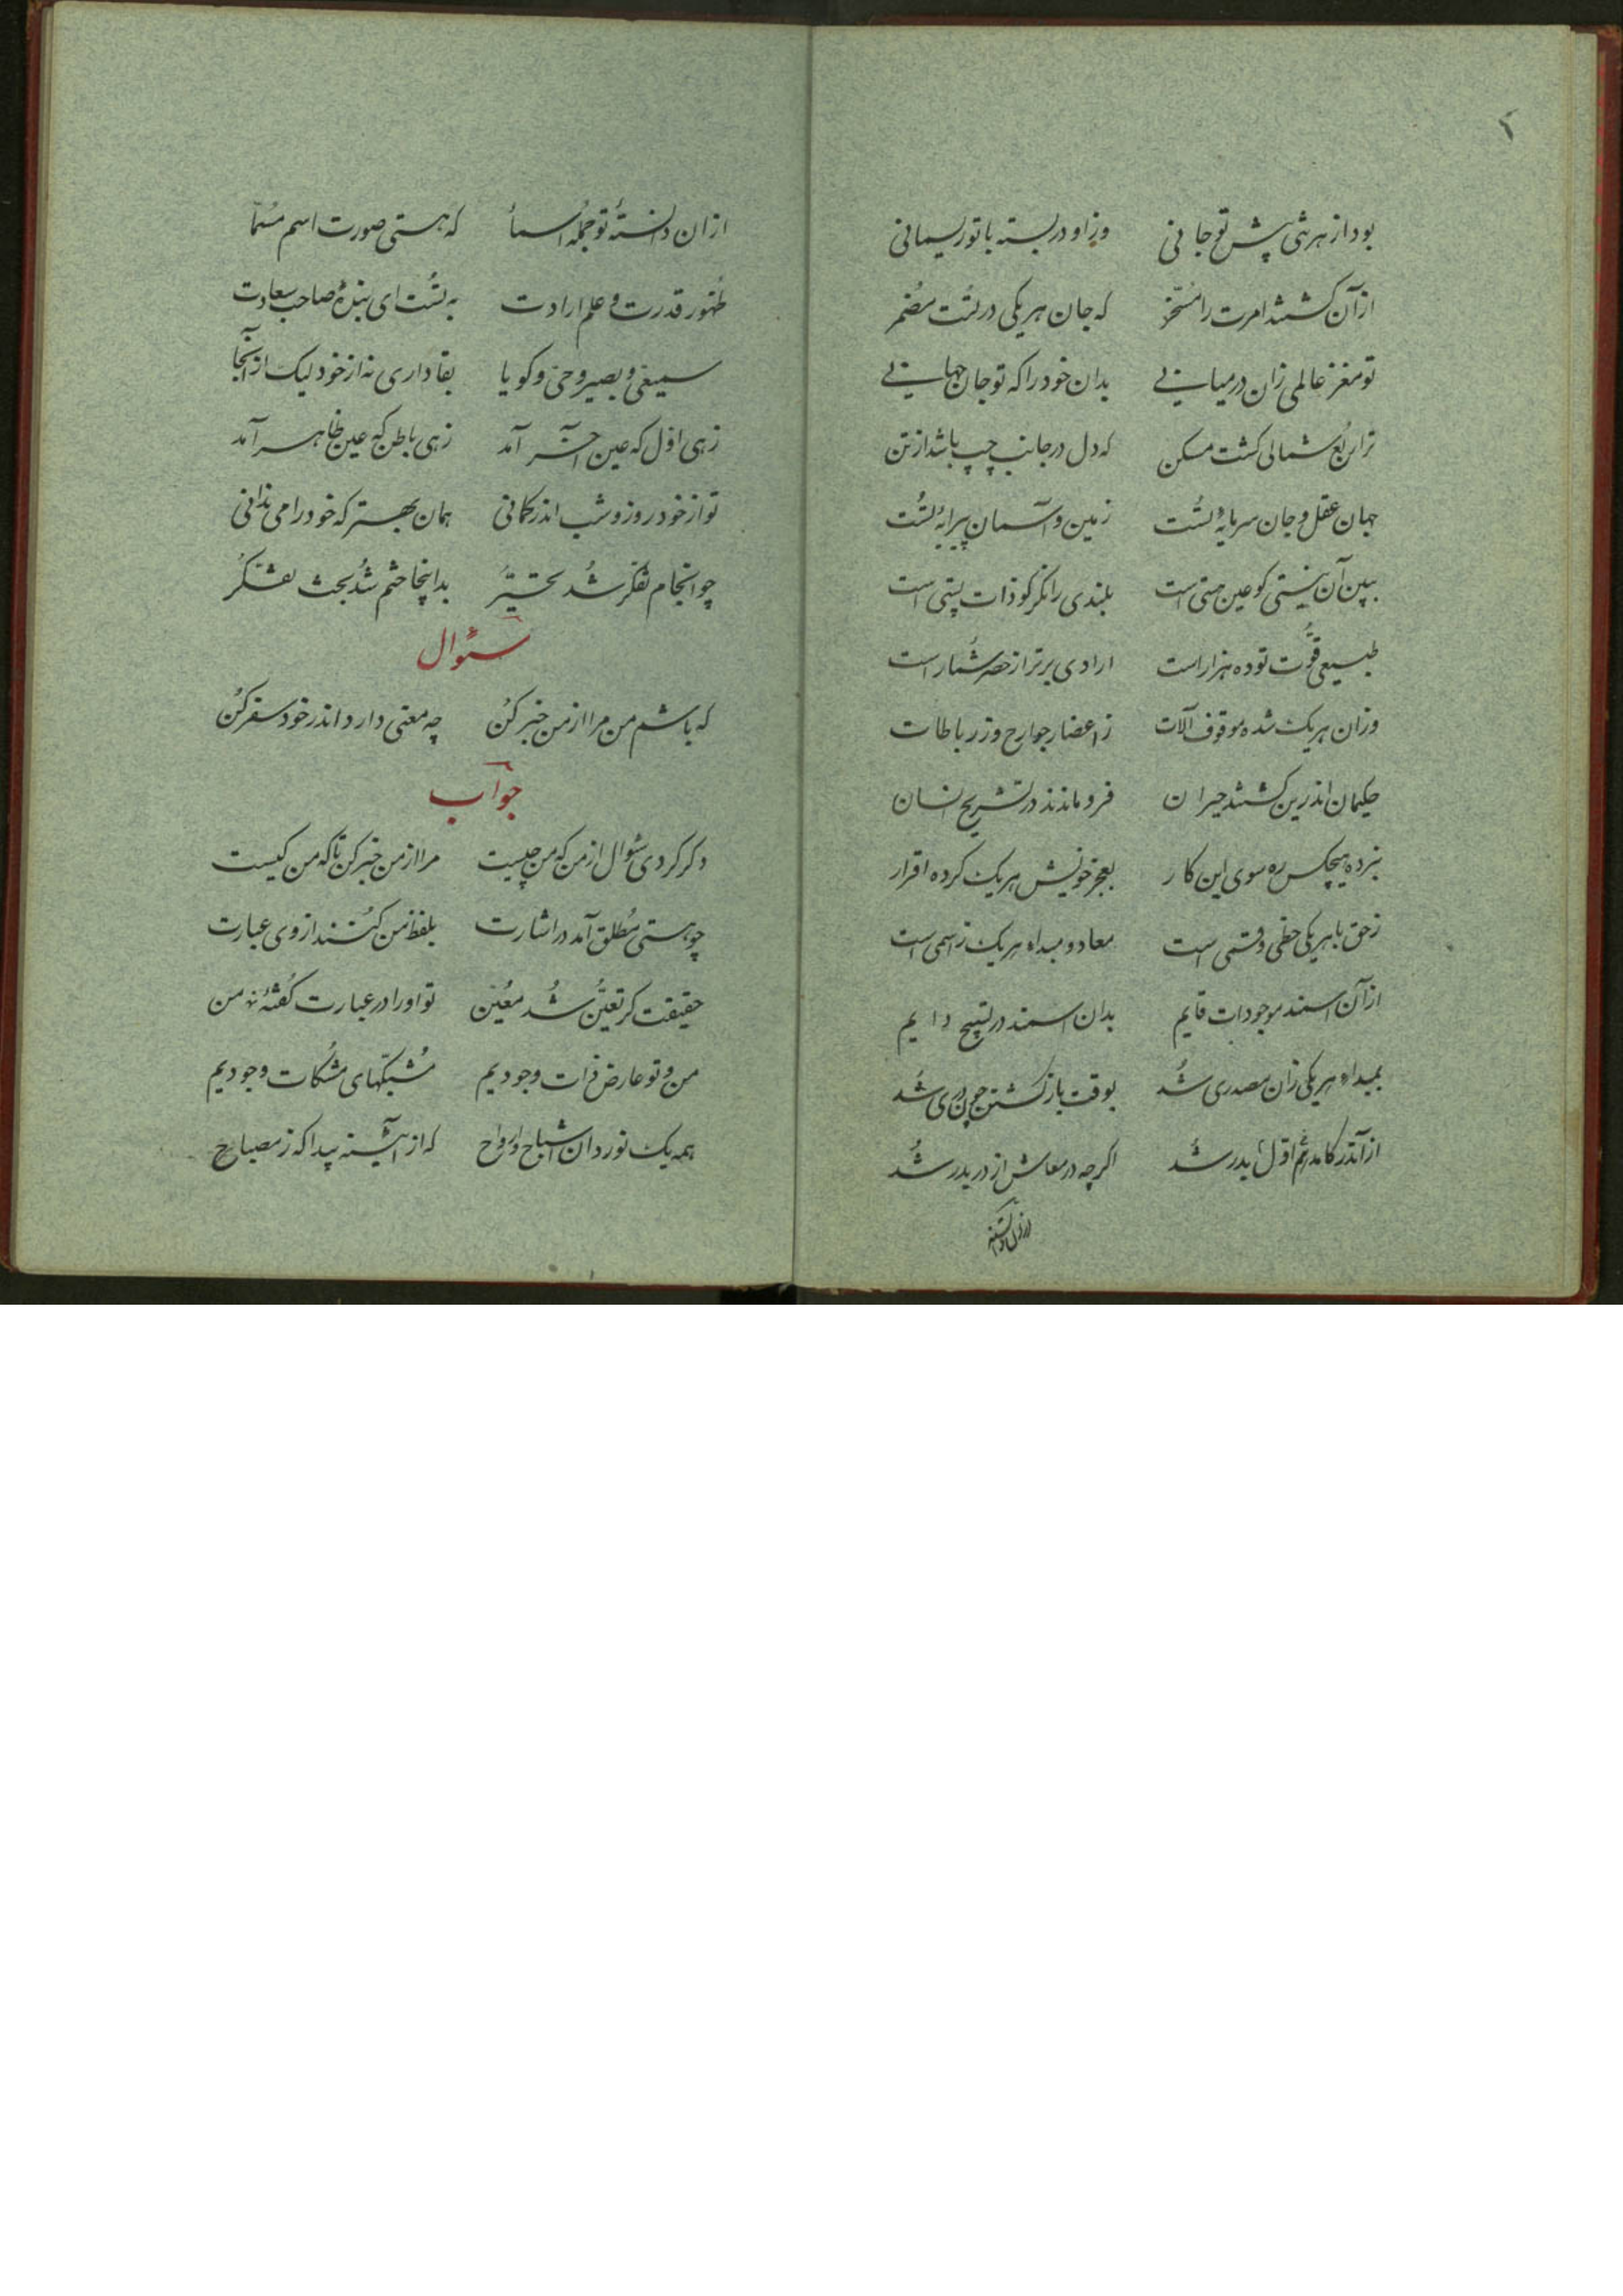 ۶
بود از هر شی پیش تو جانی وزاو در بسته با تو ریسمانی
ازآن کشتند امرت را مسخّر که جان هر یکی در تُست مُضمر
تو مغز عالمی زان در میانی بدان خود را که تو جان جهانی
ترا ربُع شمالی کشت مسکن که دل در جانب چپ باشد از تن
جهان عقل و جان سرمایهٔ تُست زمین و آسمان پیرایهٔ تُست
ببین آن نیستی کو عین هستی است بلندی را نکر کو ذات پستی است
طبیعی قوّت تو ده هزار است ارادی برتر از حصر شُمار است
وزان هر یک شده موقوف آلات ز اعضا و جوارح وز رباطات
حکیمان اندرین کشتند حیران فرو ماندند در تشریح انسان
نبرده هیچکس ره سوی این کار بعجز خویش هر یک کرده اقرار
ز حق با هر یکی حظی و قسمی است معاد و مبداء هر یک ز اسمی است
ازآن اسمند موجودات قایم بدان اسمند در تسبیح دایم
بمبداء هر یکی زان مصدری شُد بوقت بازکشتن چون دری شُد
ازآن در کامد اوّل هم بدر شُد اکرچه در معاش از در بدر شُد
ازان دانسته
ازان دانستهٔ تو جملهٔ اسماء که هستی صورت اسم مُسمّا
ظُهور قدرت و علم ارادت به تُست ای بندهٔ صاحب سعادت
سمیعی و بصیر و حیّ و کویا بقا داری نه از خود لیک از آنجا
زهی اوّل که عین آخر آمد زهی باطن که عین ظاهر آمد
تو از خود روز و شب اندر کمانی همان بهتر که خود را می ندانی
چو انجام تفکّر شُد تحیّر بداینجا ختم شُد بحث تفکّر
سئوال
که باشم من مرا از من خبر کُن چه معنی دارد اندر خود سفر کُن
جواب
دکر کردی سئوال از من که من چیست مرا از من خبر کن تا که من کیست
چو هستی مُطلق آمد در اشارت بلفظ من کُنند از وی عبارت
حقیقت کز تعیُّن شُد معیُّن تو اورا در عبارت کُفتهٔ من
من و تو عارض ذات وجودیم مُشبّکهای مشکات وجودیم
همه یک نور دان اشباح و ارواح که از آیینه پیدا که ز مصباح